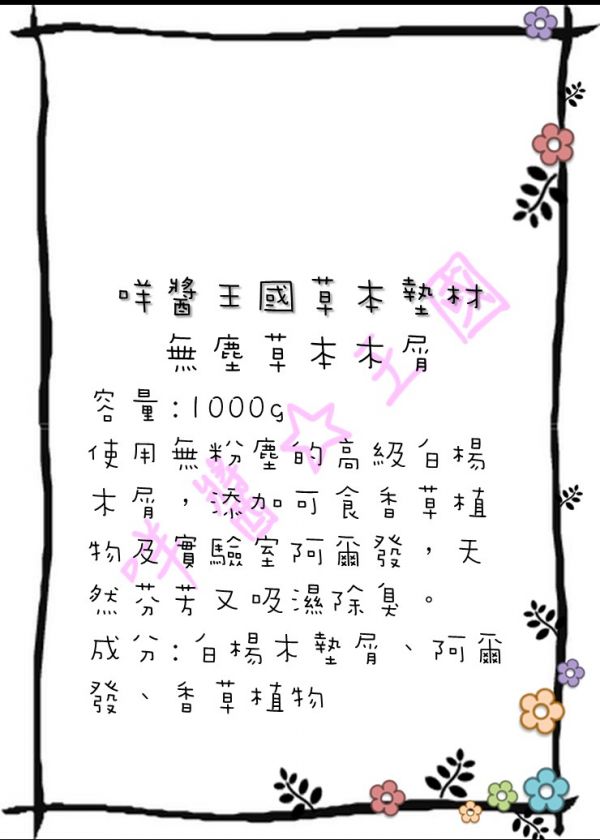 咩醬王國草本墊材
無塵草本木屑
容量:1000g
使用無粉塵的高級白楊
木屑，添加可食香草植
物及實驗室阿爾發，天
然芬芳又吸濕除臭。
成分:白楊木墊屑、阿爾
發、香草植物
咩醬☆王國